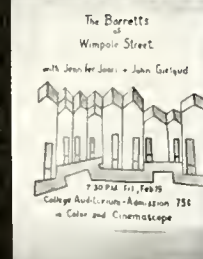 The Barretts
of
Wimpole Street
with Jennifer Jones + John Gielgud
7 30 P.M. Fri, Feb 19
College Auditorium - Admission 75¢
in Color and Cinemascope